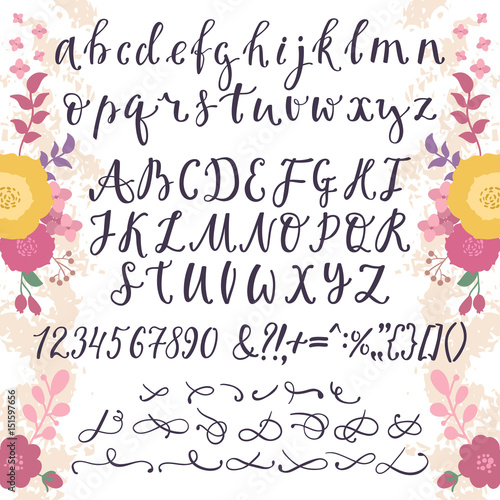 abcdefghijklmn
opqrstuvwxyz
ABCDEFGHI
JKLMNOPQR
STUVWXYZ
1234567890 &?!,+=^:%„"{}[]()
151597656
Adobe Stock